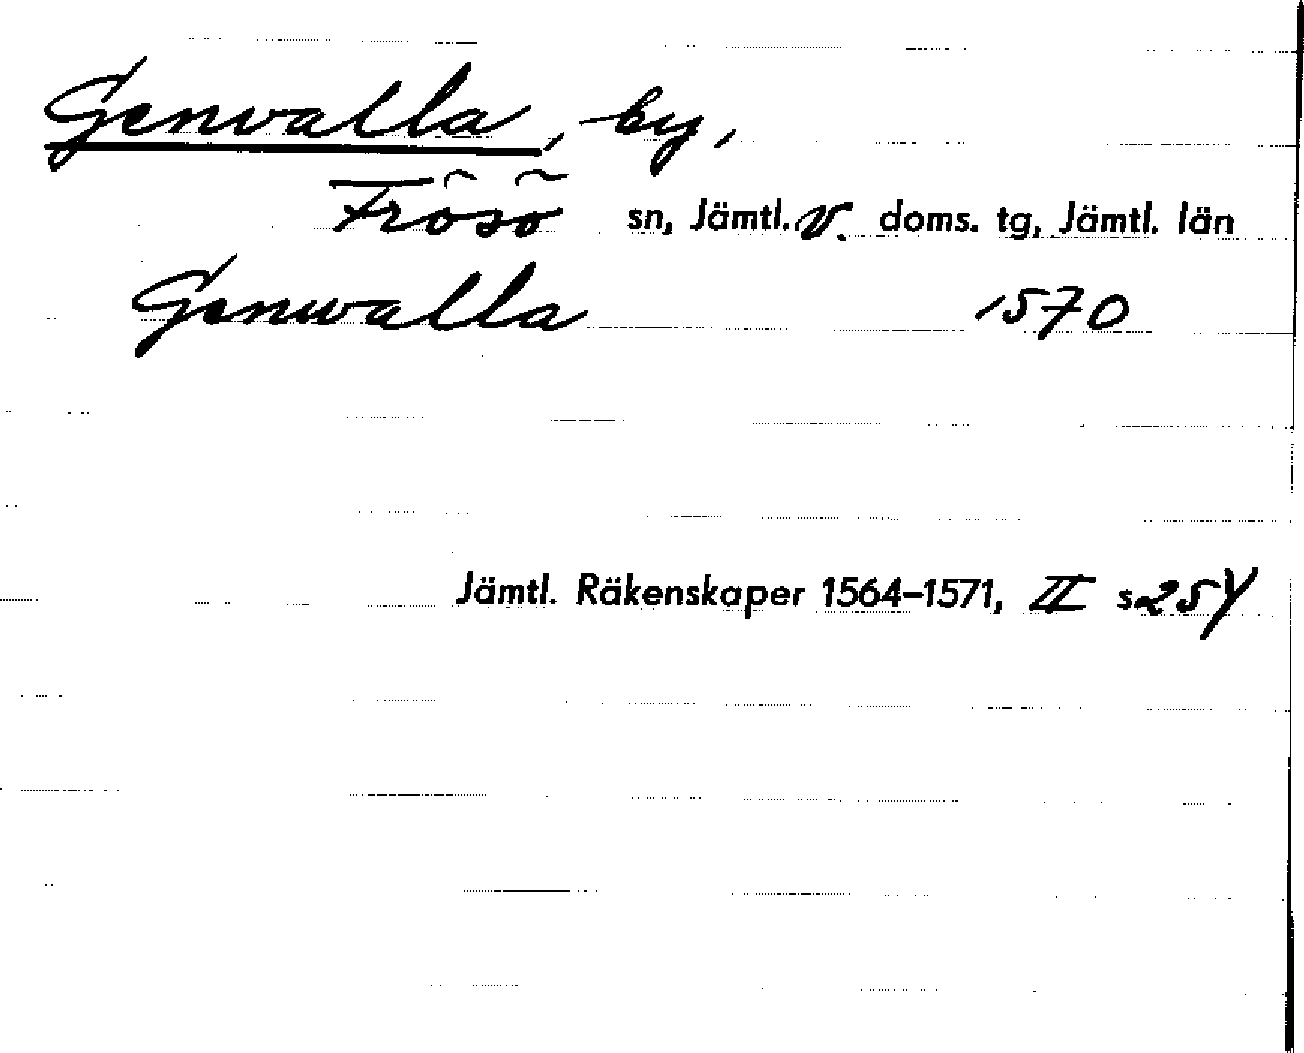 Genvalla, by,
Frösö sn, Jämtl. V. doms. tg, Jämtl. län
Genwalla 1570
Jämtl. Räkenskaper 1564–1571, II s 254